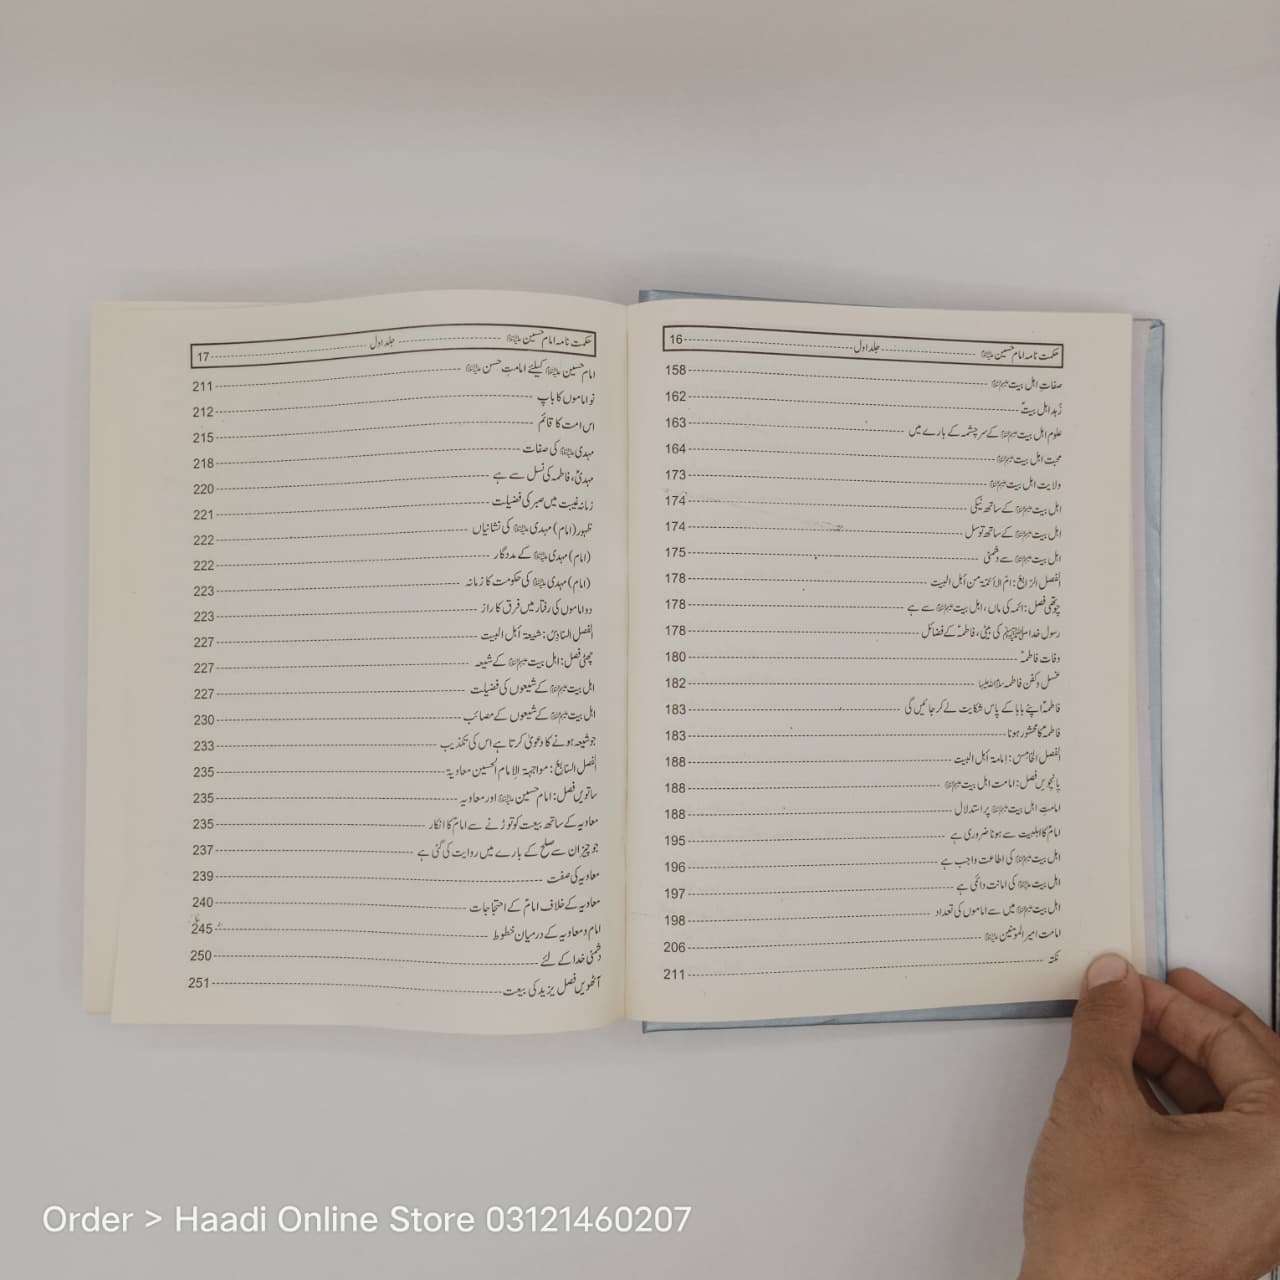 حکمت نامہ امام حسین علیہ السلام ---- جلد اول ---- 16
صفات اہل بیت علیہم السلام ---- 158
زہد اہل بیتؑ ---- 162
علوم اہل بیت علیہم السلام کے سرچشمہ کے بارے میں ---- 163
محبت اہل بیت علیہم السلام ---- 164
ولایت اہل بیت علیہم السلام ---- 173
اہل بیت علیہم السلام کے ساتھ نیکی ---- 174
اہل بیت علیہم السلام کے ساتھ توسل ---- 174
اہل بیت علیہم السلام سے دشمنی ---- 175
الفصل الرابع: ام الائمۃ من أہل البیت ---- 178
چوتھی فصل: ائمہ کی ماں، اہل بیت علیہم السلام سے ہے ---- 178
رسول خدا صلی اللہ علیہ وآلہ وسلم کی بیٹی، فاطمہؑ کے فضائل ---- 178
وفات فاطمہؑ ---- 180
غسل و کفن فاطمہ سلام اللہ علیہا ---- 182
فاطمہؑ اپنے بابا کے پاس شکایت لے کر جائیں گی ---- 183
فاطمہؑ کا محشور ہونا ---- 183
الفصل الخامس: امامۃ أہل البیت ---- 188
پانچویں فصل: امامت اہل بیت علیہم السلام ---- 188
امامتِ اہل بیت علیہم السلام پر استدلال ---- 188
امام کا اہلبیت سے ہونا ضروری ہے ---- 195
اہل بیت علیہم السلام کی اطاعت واجب ہے ---- 196
اہل بیت علیہم السلام کی امانت دائمی ہے ---- 197
اہل بیت علیہم السلام میں سے اماموں کی تعداد ---- 198
امامت امیر المومنین علیہ السلام ---- 206
نکتہ ---- 211
حکمت نامہ امام حسین علیہ السلام ---- جلد اول ---- 17
امام حسین علیہ السلام کیلئے امامتِ حسن علیہ السلام ---- 211
نو اماموں کا باپ ---- 212
اس امت کا قائم ---- 215
مہدی علیہ السلام کی صفات ---- 218
مہدیؑ، فاطمہ کی نسل سے ہے ---- 220
زمانہ غیبت میں صبر کی فضیلت ---- 221
ظہور (امام) مہدی علیہ السلام کی نشانیاں ---- 222
(امام) مہدی علیہ السلام کے مددگار ---- 222
(امام) مہدی علیہ السلام کی حکومت کا زمانہ ---- 223
دو اماموں کی رفتار میں فرق کا راز ---- 223
الفصل السادس: شیعۃ أہل البیت ---- 227
چھٹی فصل: اہل بیت علیہم السلام کے شیعہ ---- 227
اہل بیت علیہم السلام کے شیعوں کی فضیلت ---- 227
اہل بیت علیہم السلام کے شیعوں کے مصائب ---- 230
جو شیعہ ہونے کا دعویٰ کرتا ہے اس کی تکذیب ---- 233
الفصل السابع: مواجہۃ الامام الحسین معاویۃ ---- 235
ساتویں فصل: امام حسین علیہ السلام اور معاویہ ---- 235
معاویہ کے ساتھ بیعت کو توڑنے سے امامؑ کا انکار ---- 235
جو چیز ان سے صلح کے بارے میں روایت کی گئی ہے ---- 237
معاویہ کی صفت ---- 239
معاویہ کے خلاف امامؑ کے احتجاجات ---- 240
امام و معاویہ کے درمیان خطوط ---- 245
دشمنی خدا کے لئے ---- 250
آٹھویں فصل یزید کی بیعت ---- 251
Order > Haadi Online Store 03121460207